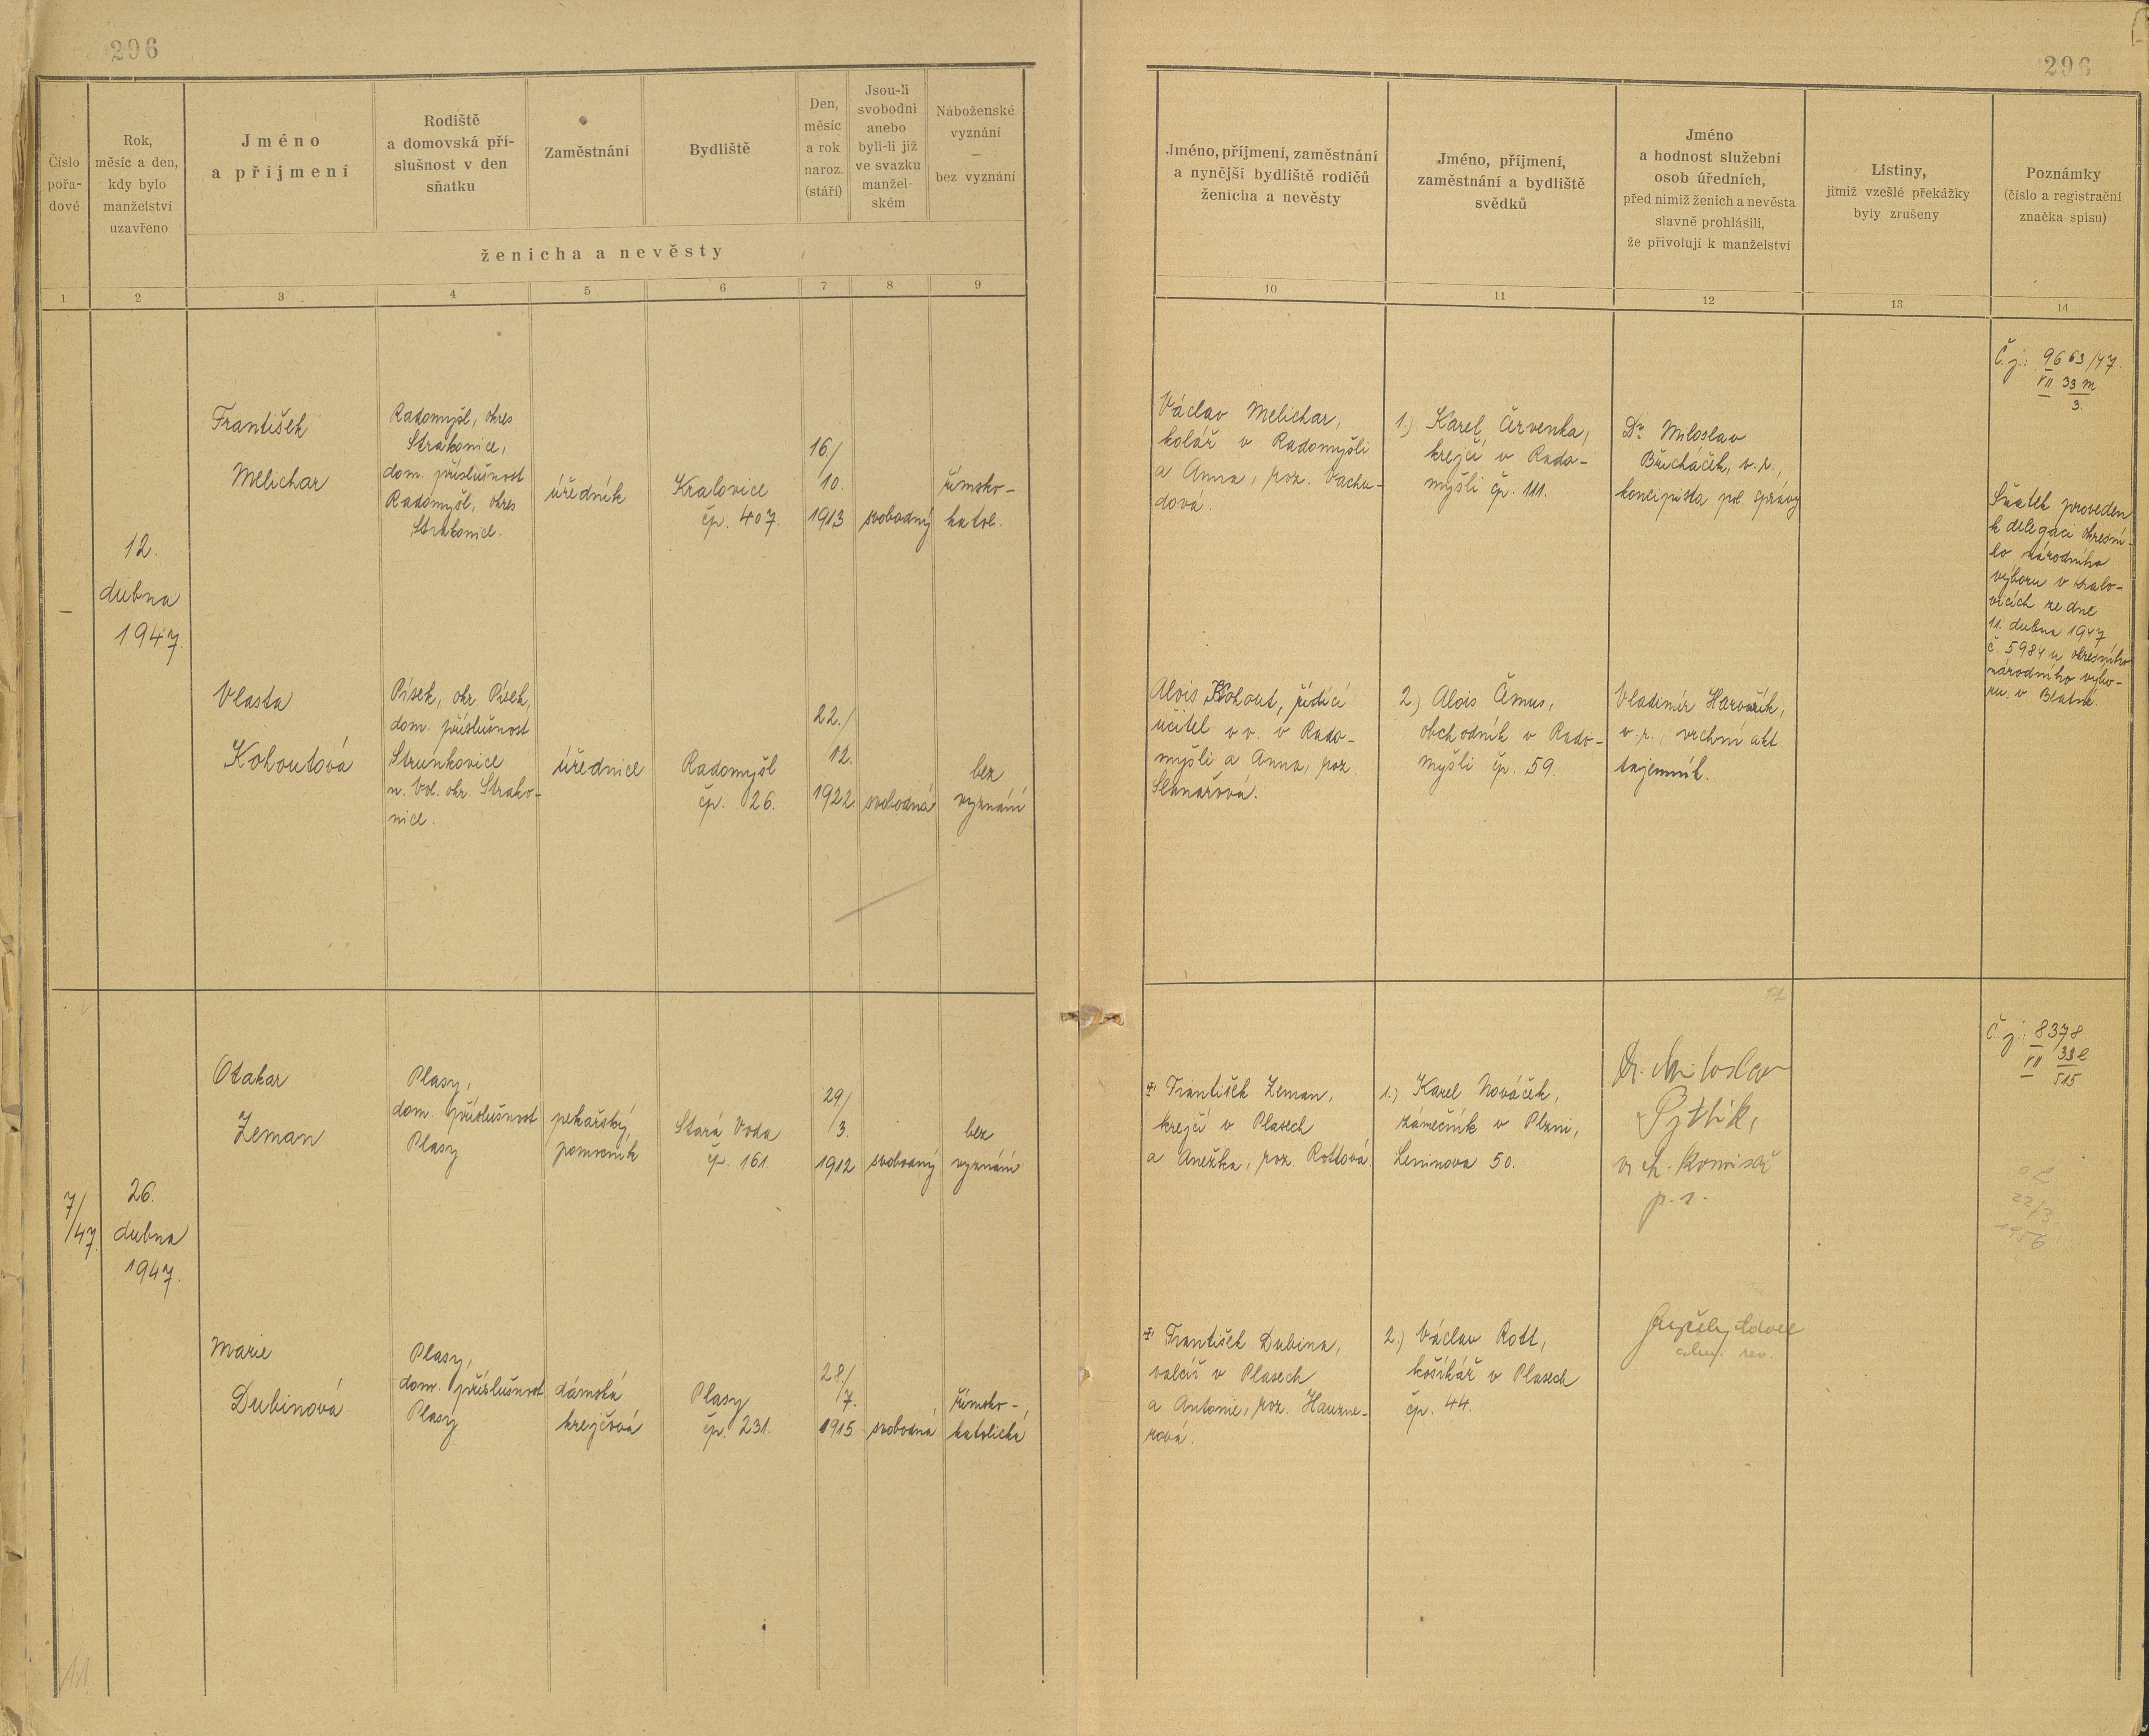 296
296
Číslo
pořa-
dové
Rok,
měsíc a den,
kdy bylo
manželství
uzavřeno
Jméno
a příjmení
Rodiště
a domovská pří-
slušnost v den
sňatku
Zaměstnání
Bydliště
Den,
měsíc
a rok
naroz.
(stáří)
Jsou-li
svobodni
anebo
byli-li již
ve svazku
manžel-
ském
Náboženské
vyznání
—
bez vyznání
ženicha a nevěsty
Jméno, příjmení, zaměstnání
a nynější bydliště rodičů
ženicha a nevěsty
Jméno, příjmení,
zaměstnání a bydliště
svědků
Jméno
a hodnost služební
osob úředních,
před nimiž ženich a nevěsta
slavně prohlásili,
že přivolují k manželství
Listiny,
jimiž vzešlé překážky
byly zrušeny
Poznámky
(číslo a registrační
značka spisu)
1 2 3 4 5 6 7 8 9 10 11 12 13 14
—
12.
dubna
1947
František
Melichar
Radomyšl, okres
Strakonice,
dom. příslušnost
Radomyšl, okres
Strakonice.
úředník
Kralovice
čp. 407.
16./
10.
1913
svobodný
římsko-
katol.
Václav Melichar,
kolář v Radomyšli
a Anna, roz. Vachu-
dová.
1.) Karel Červenka,
krejčí v Rado-
myšli čp. 111.
Dr. Miloslav
Břicháček, v. r.,
koncipista pol. správy
Č. j.: 9663/47.
VII 33 m
3.
Sňatek proveden
k delegaci okresní-
ho národního
výboru v Kralo-
vicích ze dne
11. dubna 1947
č. 5984 u okresního
národního výbo-
ru v Blatné.
Vlasta
Kohoutová
Písek, okr. Písek,
dom. příslušnost
Strunkovice
n. Vol. okr. Strako-
nice.
úřednice
Radomyšl
čp. 26.
22./
12.
1922
svobodná
bez
vyznání
Alois Kohout, řídící
učitel v v. v Rado-
myšli a Anna, roz.
2.) Alois Čemus,
obchodník v Rado-
myšli čp. 59.
Vladimír
v. r., vrchní akt.
tajemník.
7/
/47.
26.
dubna
1947.
Otakar
Zeman
Plasy,
dom. příslušnost
Plasy
pekařský
pomocník
Stará Voda
čp. 161.
29/
3.
1912
svobodný
bez
vyznání
František Zeman,
krejčí v Plasech
a Anežka, roz. Rottová.
1.) Karel Nováček,
zámečník v Plzni,
Leninova 50.
Dr. Miloslav
Pytlík,
vr. komisař
p. s.
Č. j.: 8378
VII 33 l
515
22/3.
1956
Marie
Dubinová
Plasy,
dom. příslušnost
Plasy
dámská
krejčová
Plasy
čp. 231.
28./
7.
1915
svobodná
římsko-
katolická
František Dubina,
valcíř v Plasech
a Antonie, roz. Hauzne-
rová.
2.) Václav Rott,
košíkář v Plasech
čp. 44.
11